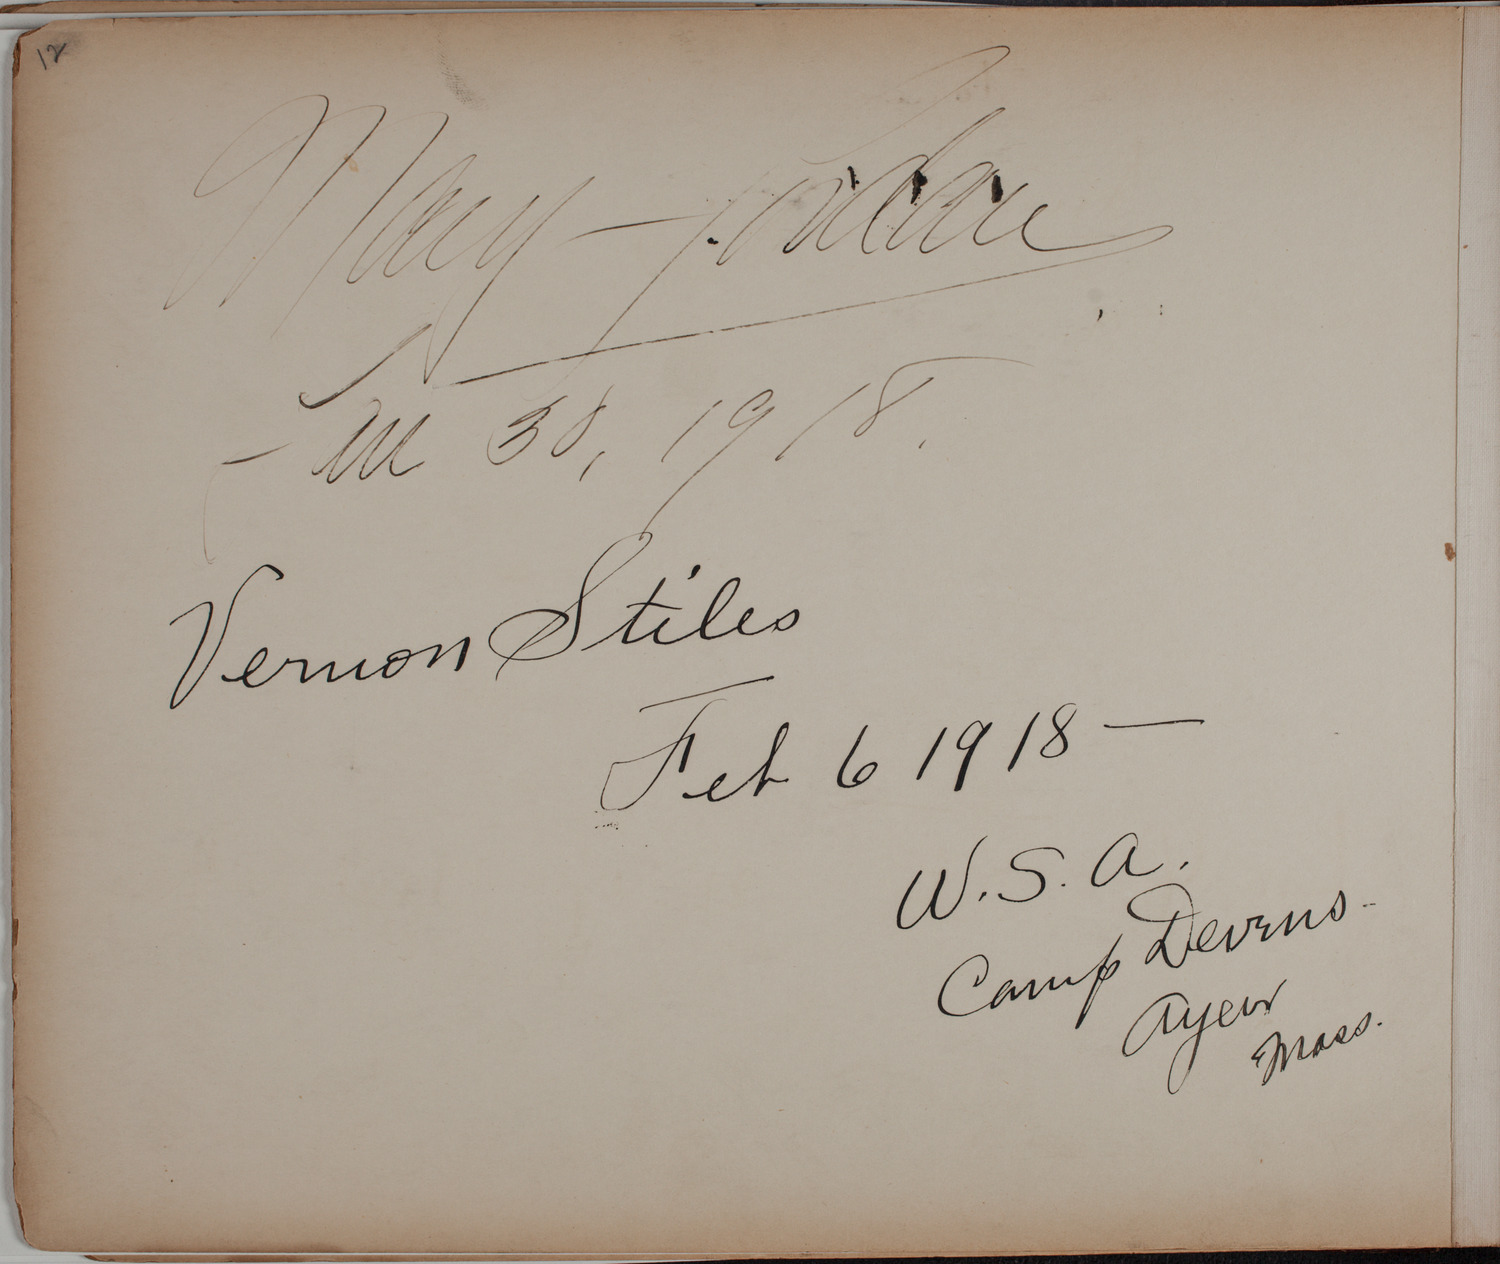 12
Mary Jordan
Jan 30, 1918.
Vernon Stiles
Feb 6 1918 —
W.S.A.
Camp Devens -
Ayer
Mass.